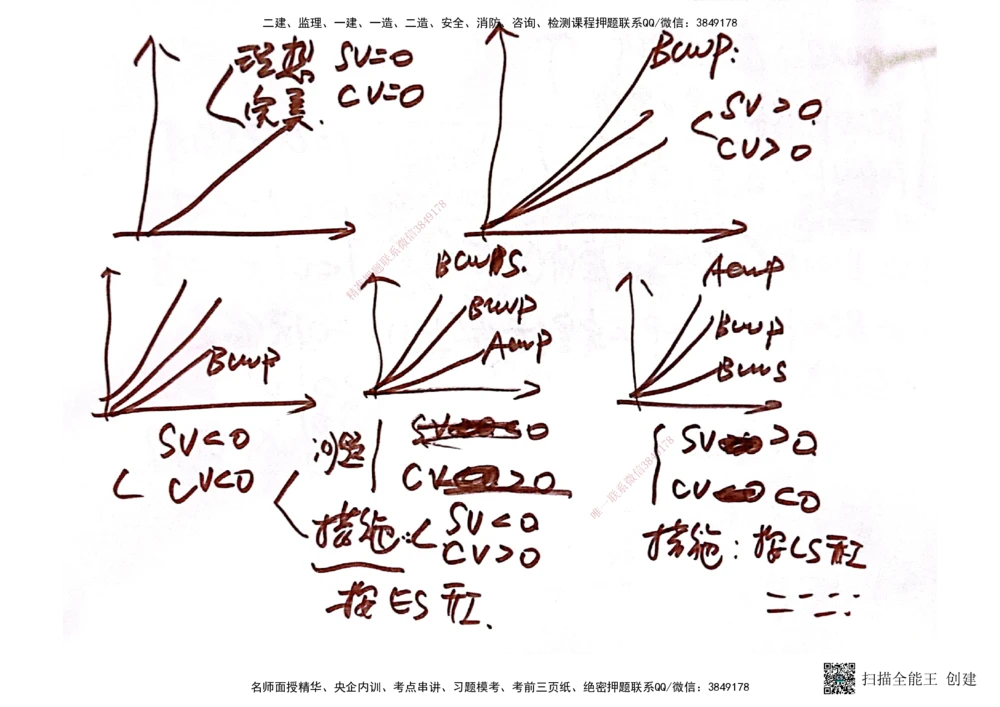 二建、监理、一建、一造、二造、安全、消防、咨询、检测课程押题联系QQ/微信：3849178
理想 SV=0
完美. CV=0
BCWP:
SV>0
CV>0
BCWP
SV<0
CV<0
BCWS.
BCWP
ACWP
问题
CV>0
措施: SV<0
CV>0
按ES开工.
ACWP
BCWP
BCWS
SV>0
CV<0
措施: 按LS开工
精准押题联系微信3849178
唯一联系微信3849178
名师面授精华、央企内训、考点串讲、习题模考、考前三页纸、绝密押题联系QQ/微信：3849178
扫描全能王 创建